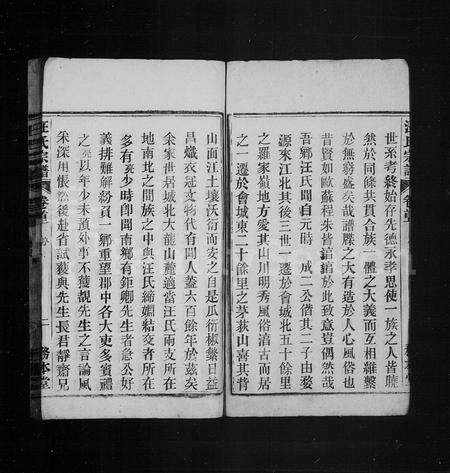 世系考終始存先德永孝思使一族之人皆曉
然於同條共貫合族一體之大義而互相維繫
於無窮盛矣哉譜牒之大有造於人心風俗也
昔賢如歐蘇程朱皆諳諳於此致意豈偶然哉
吾鄉汪氏聞自元時 成二公偕其二子由婺
源來江北其後三世一遷於會城北五十餘里
之羅家嶺地方愛其山川明秀風俗湻古而居
之一遷於會城東二十餘里之茅荻山喜其背
山面江土壤沃衍而安之自是瓜衍椒繁日益
昌熾衣冠文物代有聞人蓋六百餘年於茲矣
余家世居城北大龍山麓適當汪氏兩支所在
地南北之間族之中與汪氏締姻結交者所在
多有炎少時卽聞南鄉有鉅卿先生者急公好
義排難解紛頁一鄉重望郡中各大吏多賓禮
之炎以年少未預外事不獲覩先生之言論風
采深用悵然後赴省試獲與先生長君靜齋兄
汪氏宗譜
卷首
務本堂
汪氏宗譜
卷首